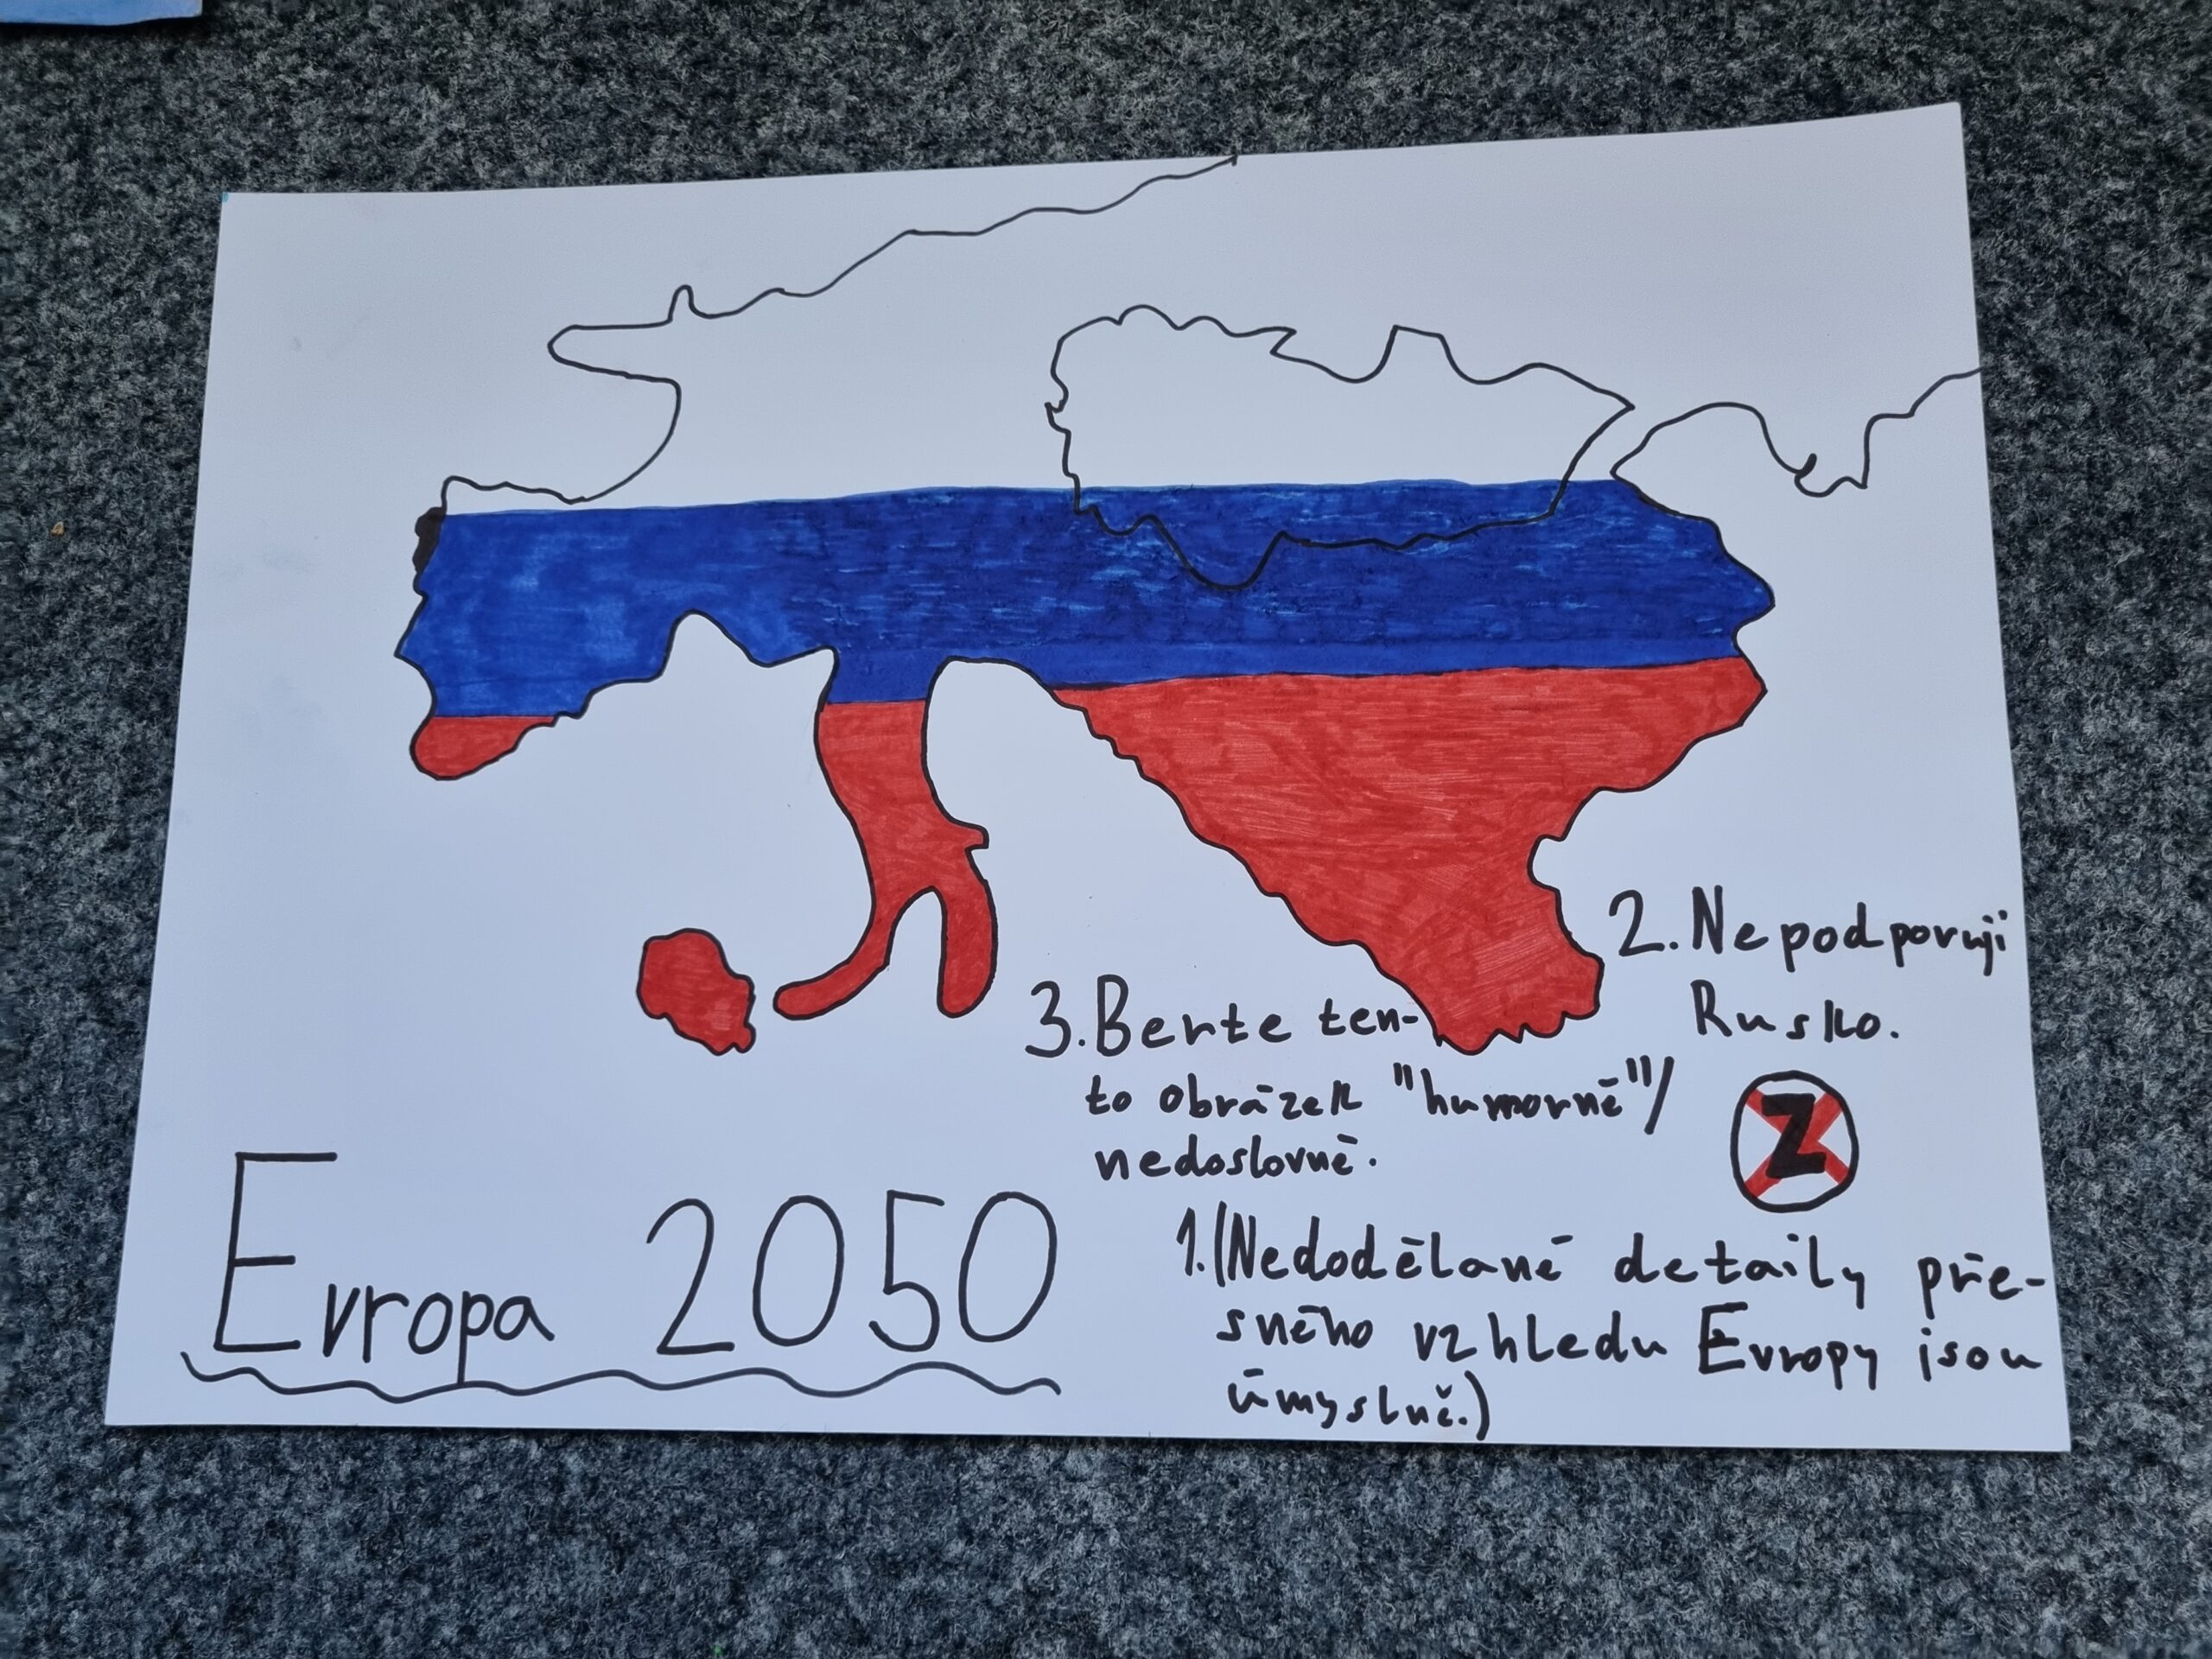 2. Nepodporuji
Rusko.
3. Berte ten-
to obrázek "humorně"/
nedoslovně.
Z
Evropa 2050
1. (Nedodělané detaily pře-
sného vzhledu Evropy jsou
úmyslně.)